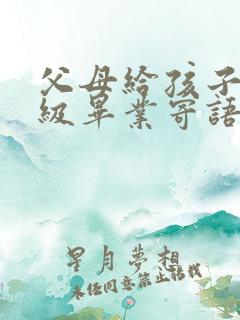 父母給孩子
級畢業寄語
星月夢想
未经同意禁止转载